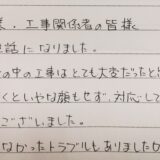 業・工事関係者の皆様
世話になりました。
の中の工事はとても大変だったと
くといやな顔もせず、対応して
ございました。
なかったトラブルもありましたが